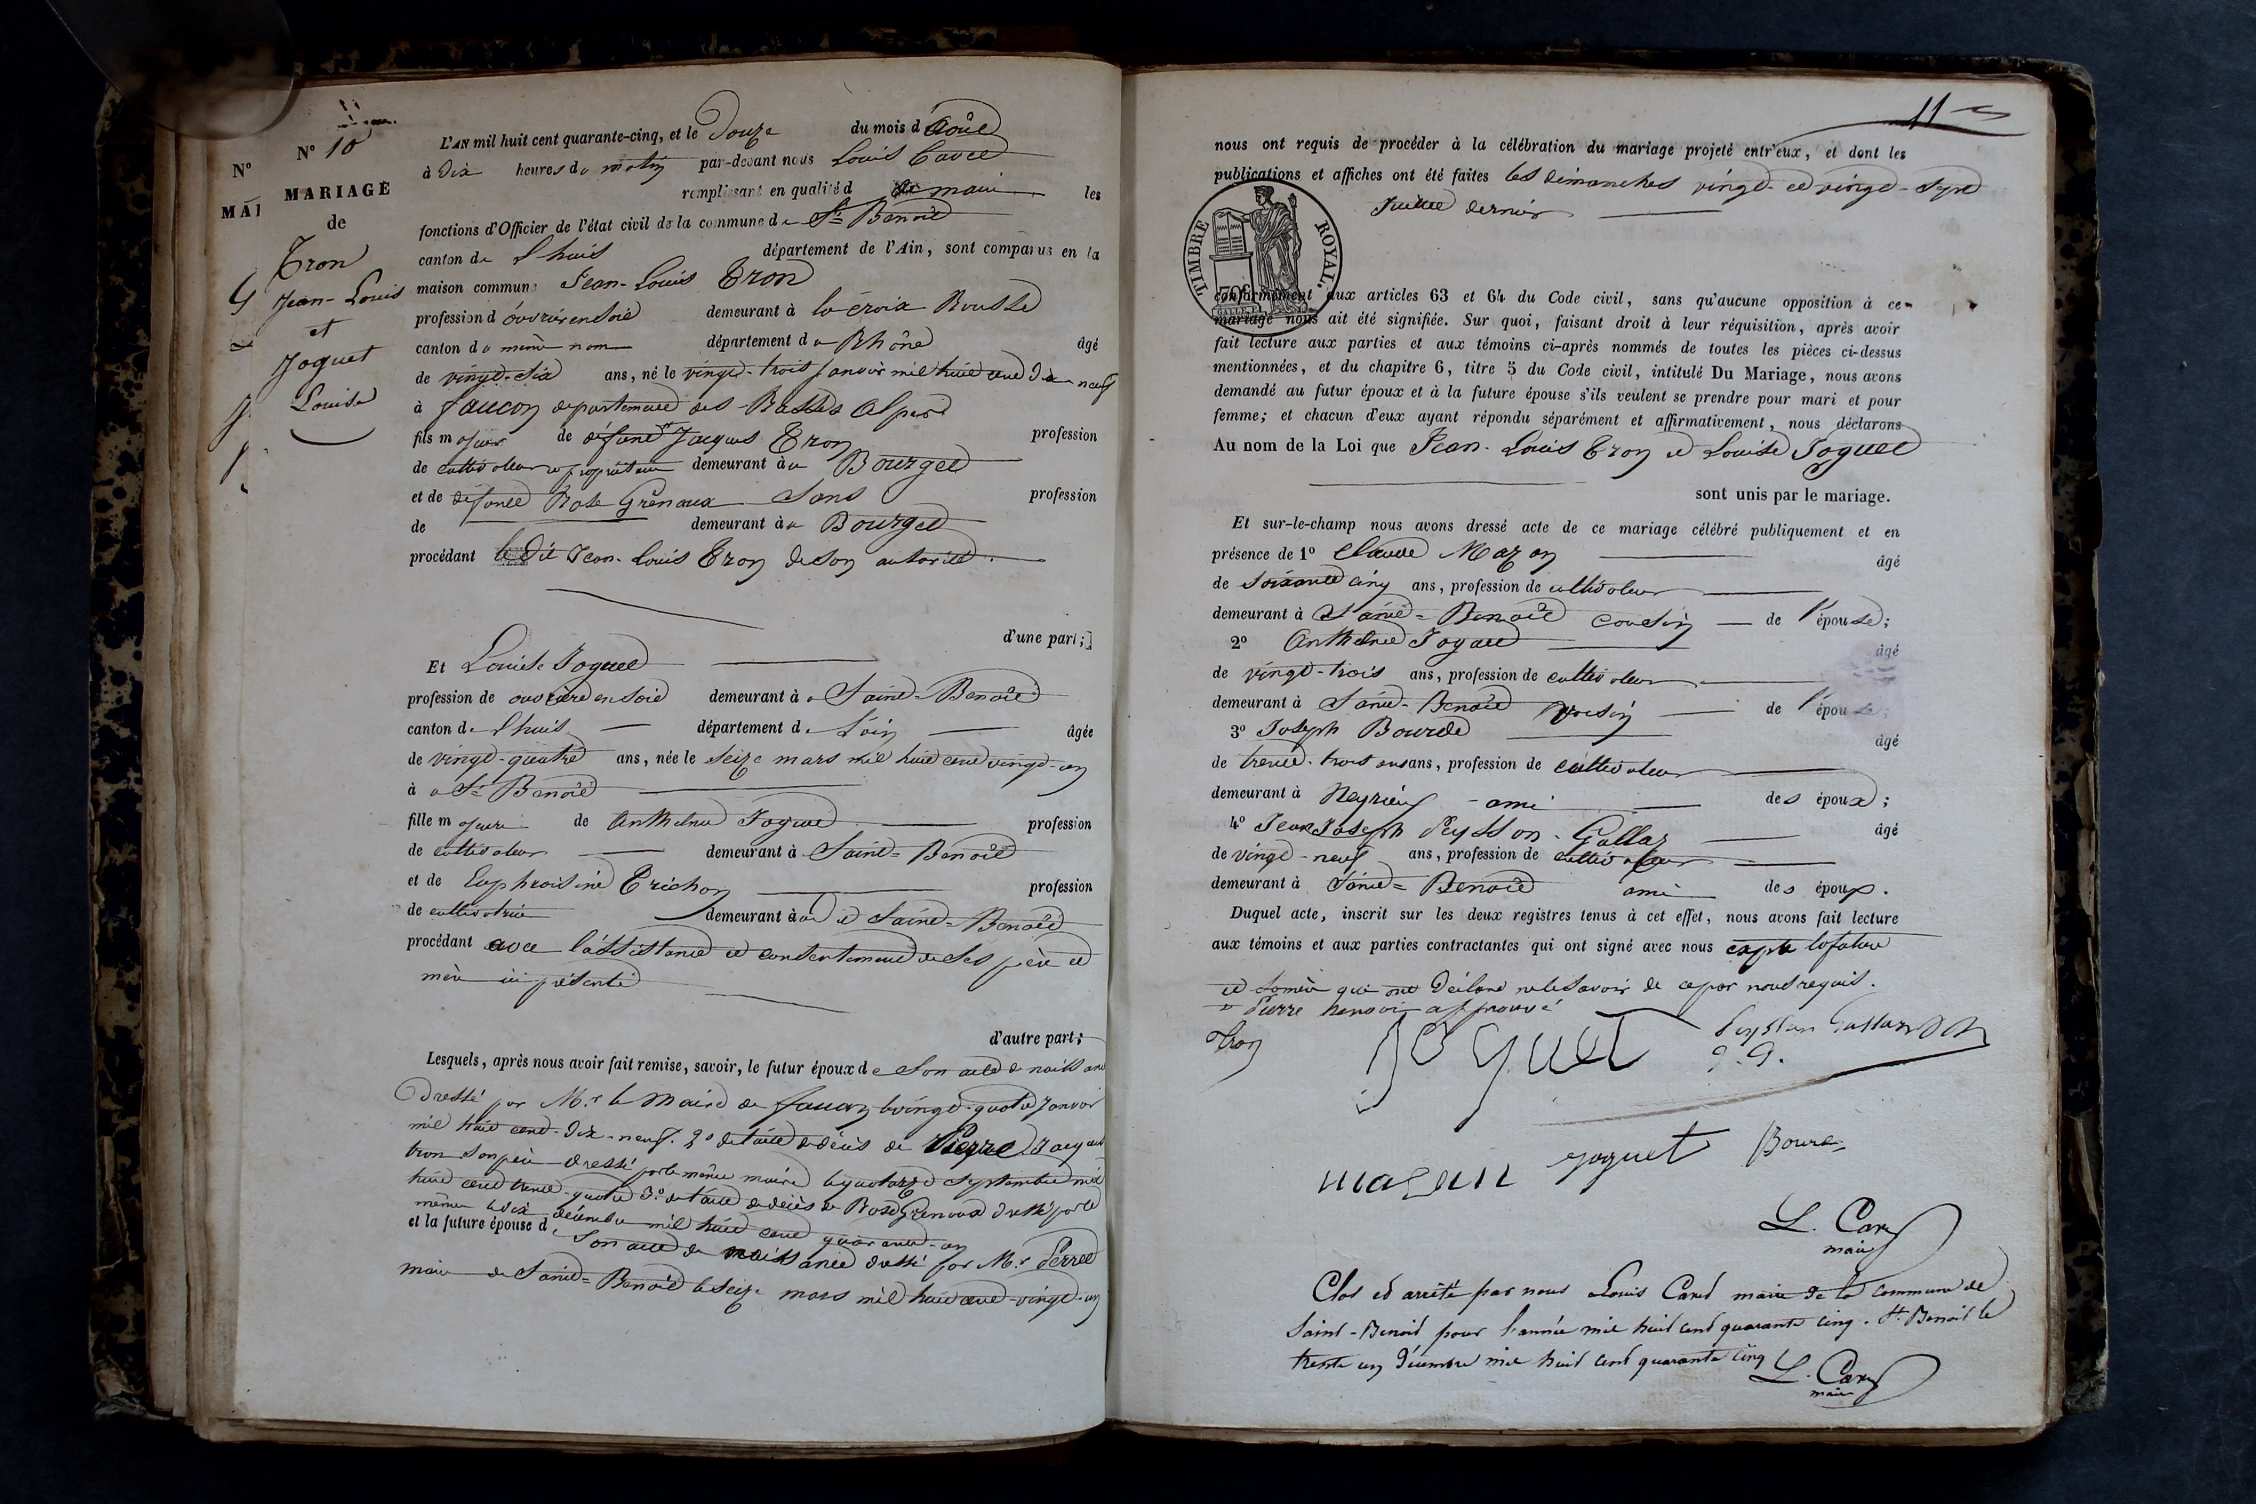 N°
MAI
N° 10
MARIAGE
de
Tron
Jean-Louis
et
Joguet
Louise
L'AN mil huit cent quarante-cinq, et le Douze du mois d'août
à dix heures du matin par-devant nous Louis Cavet
remplissant en qualité de maire les
fonctions d'Officier de l'état civil de la commune de St Benoît
canton de Lhuis département de l'Ain, sont comparus en la
maison commune Jean-Louis Tron
profession d'ouvrier en soie demeurant à la croix Rousse
canton du même nom département du Rhône âgé
de vingt-six ans, né le vingt-trois janvier mil huit cent dix neuf
à faucon département des Basses Alpes
fils majeur de défunt Jacques Tron profession
de cultivateur propriétaire demeurant à Bourget
et de défunte Rose Grenoux Sans profession
de demeurant à Bourget
procédant le dit Jean-Louis Tron de son autorité
d'une part;
Et Louise Joguet
profession de ouvrière en soie demeurant à Saint-Benoît
canton de Lhuis département de L'ain âgée
de vingt-quatre ans, née le seize mars mil huit cent vingt-un
à St Benoît
fille majeure de Anthelme Joguet profession
de cultivateur demeurant à Saint-Benoît
et de Euphroisine Trichon profession
de cultivatrice demeurant à Saint-Benoît
procédant avec l'assistance et consentement de ses père et
mère ici présents
d'autre part;
Lesquels, après nous avoir fait remise, savoir, le futur époux de son acte de naissance
dressé par Mr le Maire de faucon le vingt-quatre janvier
mil huit cent dix-neuf. 2° de l'acte de décès de Pierre Jacques
tron son père dressé par le même maire le quatorze septembre mil
huit cent trente-quatre 3° de l'acte de décès de Rose Grenoux dressé par le
même le dix décembre mil huit cent quarante-un
et la future épouse de son acte de naissance dressé par Mr Perret
maire de Saint-Benoît le seize mars mil huit cent vingt-un
11
nous ont requis de procéder à la célébration du mariage projeté entr'eux, et dont les
publications et affiches ont été faites les dimanches vingt et vingt-sept
Juillet dernier
TIMBRE ROYAL.
conformément aux articles 63 et 64 du Code civil, sans qu'aucune opposition à ce
mariage nous ait été signifiée. Sur quoi, faisant droit à leur réquisition, après avoir
fait lecture aux parties et aux témoins ci-après nommés de toutes les pièces ci-dessus
mentionnées, et du chapitre 6, titre 5 du Code civil, intitulé Du Mariage, nous avons
demandé au futur époux et à la future épouse s'ils veulent se prendre pour mari et pour
femme; et chacun d'eux ayant répondu séparément et affirmativement, nous déclarons
Au nom de la Loi que Jean-Louis Tron et Louise Joguet
sont unis par le mariage.
Et sur-le-champ nous avons dressé acte de ce mariage célébré publiquement et en
présence de 1° Claude Mazon âgé
de soixante cinq ans, profession de cultivateur
demeurant à Saint-Benoît cousin de l'épouse;
2° Anthelme Joguet âgé
de vingt-trois ans, profession de cultivateur
demeurant à Saint-Benoît voisin de l'épouse;
3° Joseph Bourde âgé
de trente-trois ans ans, profession de cultivateur
demeurant à Neyrieu ami des époux;
4° Jean Joseph Peysson-Gallaz âgé
de vingt-neuf ans, profession de cultivateur
demeurant à Saint-Benoît ami des époux.
Duquel acte, inscrit sur les deux registres tenus à cet effet, nous avons fait lecture
aux témoins et aux parties contractantes qui ont signé avec nous excepté la future
et sa mère qui ont déclaré ne le savoir de ce par nous requis.
Pierre renvoi approuvé
Tron
JOGUET
mazun
joguet
L. Cavet
maire
Clos et arrêté par nous Louis Cavet maire de la commune de
Saint-Benoit pour l'année mil huit cent quarante cinq. St Benoit le
trente un décembre mil huit cent quarante cinq
L. Cavet
maire